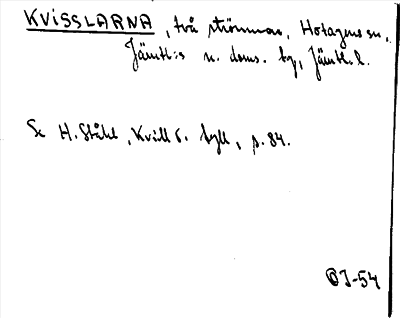 KVISSLARNA, två strömmar, Hotagens sn,
Jämtl:s n. doms. by, Jämtl. l.
Se H. Ståhl, Kvill o. byll, p. 84.
OJ-54